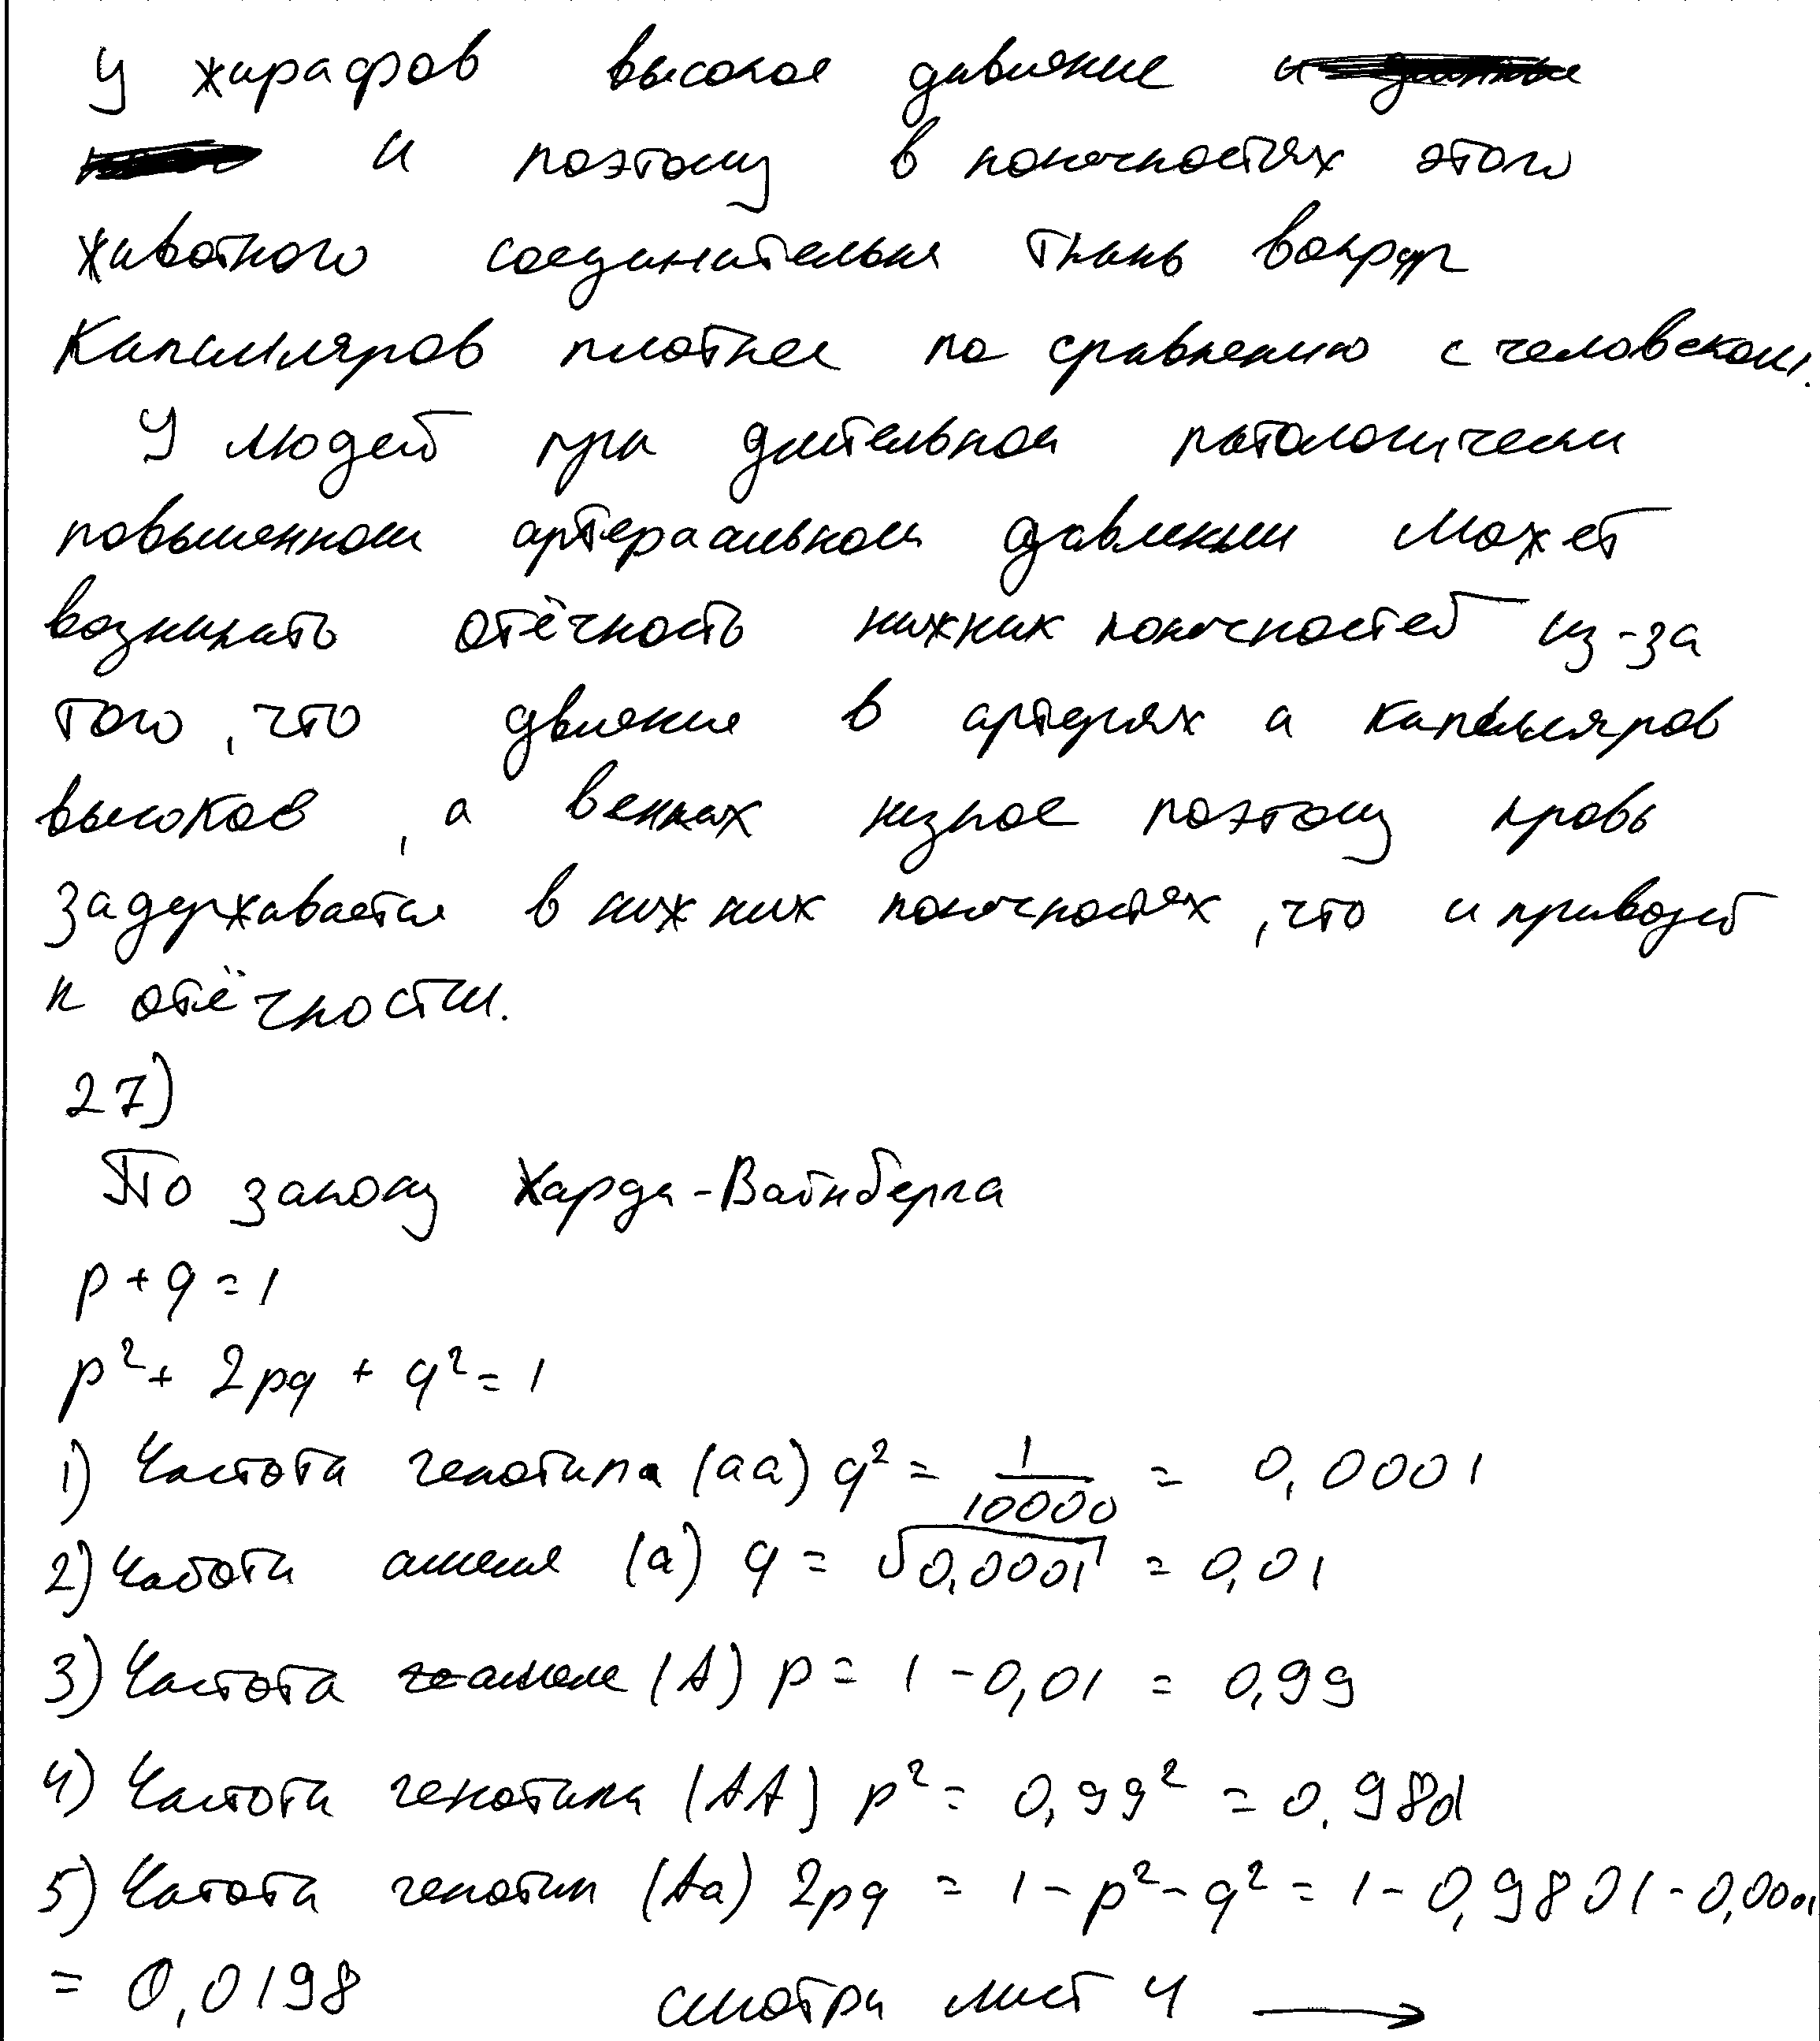 У жирафов высокое давление
и поэтому в конечностях этого
животного соединительня ткань вокруг
капилляров плотнее по сравнению с человеском.
У людей при длительном патологически
повышенном артериальном давлении может
возникать отёчность нижних конечностей из-за
того, что двление в артериях и капилляров
высокое, а венных низкое поэтому кровь
задерживается в нижних конечностях, что и приводит
к отёчности.
27)
По закону Харди-Вайнберга
p + q = 1
p² + 2pq + q² = 1
1) Частота генотипа (aa) q² = 1/10000 = 0,0001
2) Частота аллеля (a) q = √0,0001 = 0,01
3) Частота аллеля (A) p = 1 - 0,01 = 0,99
4) Частота генотипа (AA) p² = 0,99² = 0,9801
5) Чатота генотип (Aa) 2pq = 1 - p² - q² = 1 - 0,9801 - 0,0001
= 0,0198 смотри лист 4 →